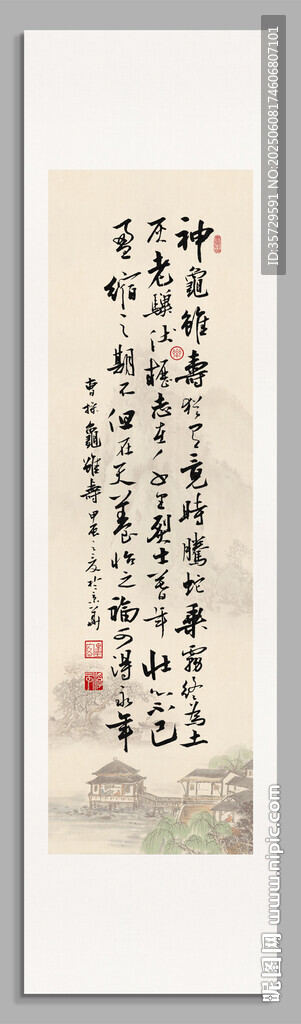 神龜雖壽猶有竟時騰蛇乘霧終為土
灰老驥伏櫪志在千里烈士暮年壯心不已
盈縮之期不但在天養怡之福可得永年
曹操龜雖壽甲辰之夏於京華
ID:35729591 NO:20250608174606807101
昵图网 www.nipic.com